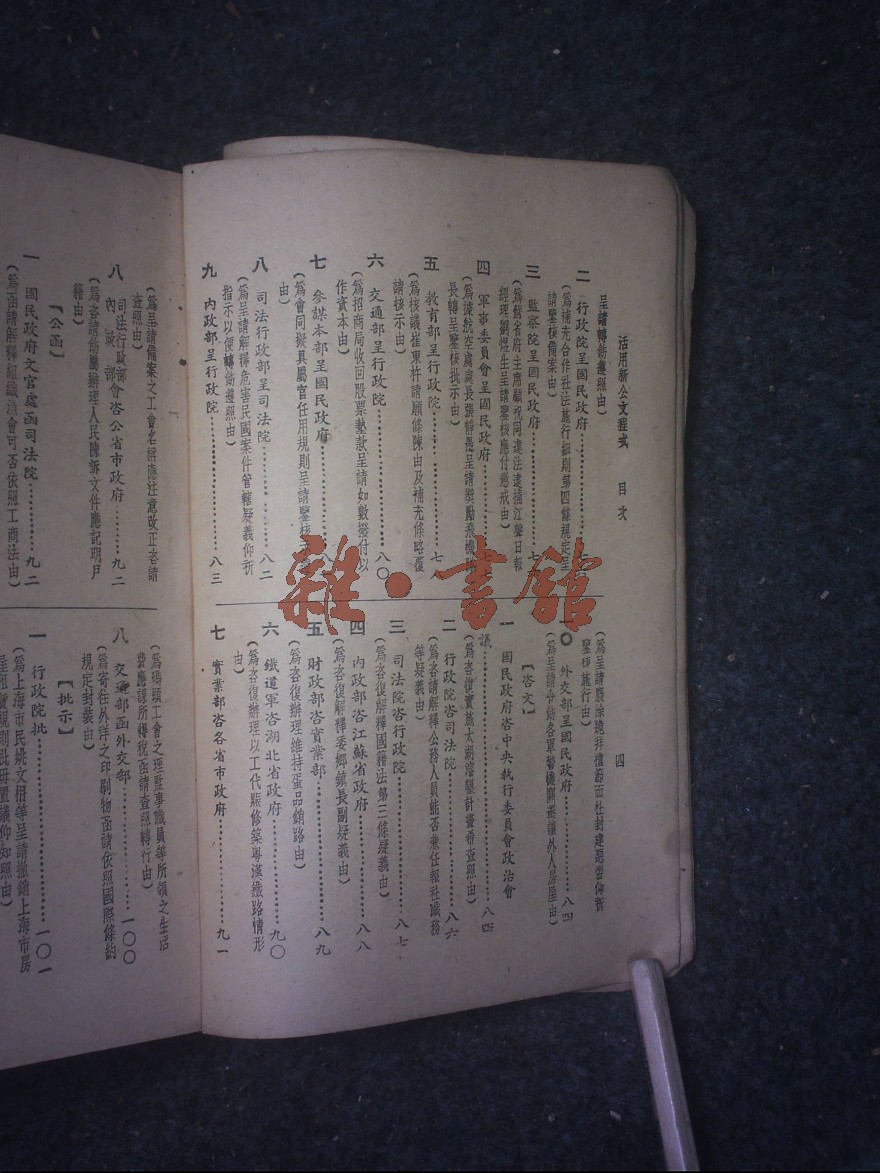 活用新公文程式　目次
四
呈請轉飭遵照由)
二　行政院呈國民政府
(爲補充合作社法施行細則第四條規定呈
請鑒核備案由)
三　監察院呈國民政府
(爲蘇省府主席顧祝同違法逮捕江聲日報
經理劉煜生呈請鑒核應付懲戒由)
四　軍事委員會呈國民政府
長轉呈鑒核批示由)
五　教育部呈行政院
(爲核議崔東杵請願條陳由及補充條略覆
請核示由)
六　交通部呈行政院………八〇
(爲招商局收回股票墊款呈請如數撥付以
作資本由)
七　參謀本部呈國民政府
(爲會同擬具屬官任用規則呈請鑒核
由)
八　司法行政部呈司法院………八二
(爲呈請解釋危害民國案件管轄疑義仰祈
指示以便轉飭遵照由)
九　內政部呈行政院………八三
鑒核施行由)
一〇　外交部呈國民政府………八四
(爲呈請令飭各軍警機關
讓外人房屋由)
【咨文】
一　國民政府咨中央執行委員會政治會
議………八四
(爲咨復實施太湖
計畫希查照由)
二　行政院咨司法院………八六
(爲咨請解釋公務人員能否兼任報社職務
等疑義由)
三　司法院咨行政院………八七
(爲咨復解釋國籍法第三條疑義由)
四　內政部咨江蘇省政府………八八
(爲咨復解釋委鄉鎮長副疑義由)
五　財政部咨實業部………八九
(爲咨復辦理維持蛋品銷路由)
六　鐵道軍咨湖北省政府………九〇
(爲咨復辦理以工代賑修築粵漢鐵路情形
由)
七　實業部咨各省市政府………九一
(爲呈請備案之工會名稱應注意改正咨請
查照由)
八　司法行政部
內政部
會咨公省市政府………九二
(爲咨請飭屬辦理人民陳訴文件應記明戶
籍由)
【公函】
一　國民政府文官處函司法院………九二
(爲函請解釋組織
會可否依照工商法由)
(爲碼頭工會之理監事職員等所領之生活
費應課所得稅函請查照轉行由)
八　交通部函外交部………一〇〇
(爲寄往外洋之印刷物函請依照國際條約
規定封裝由)
【批示】
一　行政院批………一〇一
(爲上海市民姚文相等呈請撤銷上海市房
雜·書館